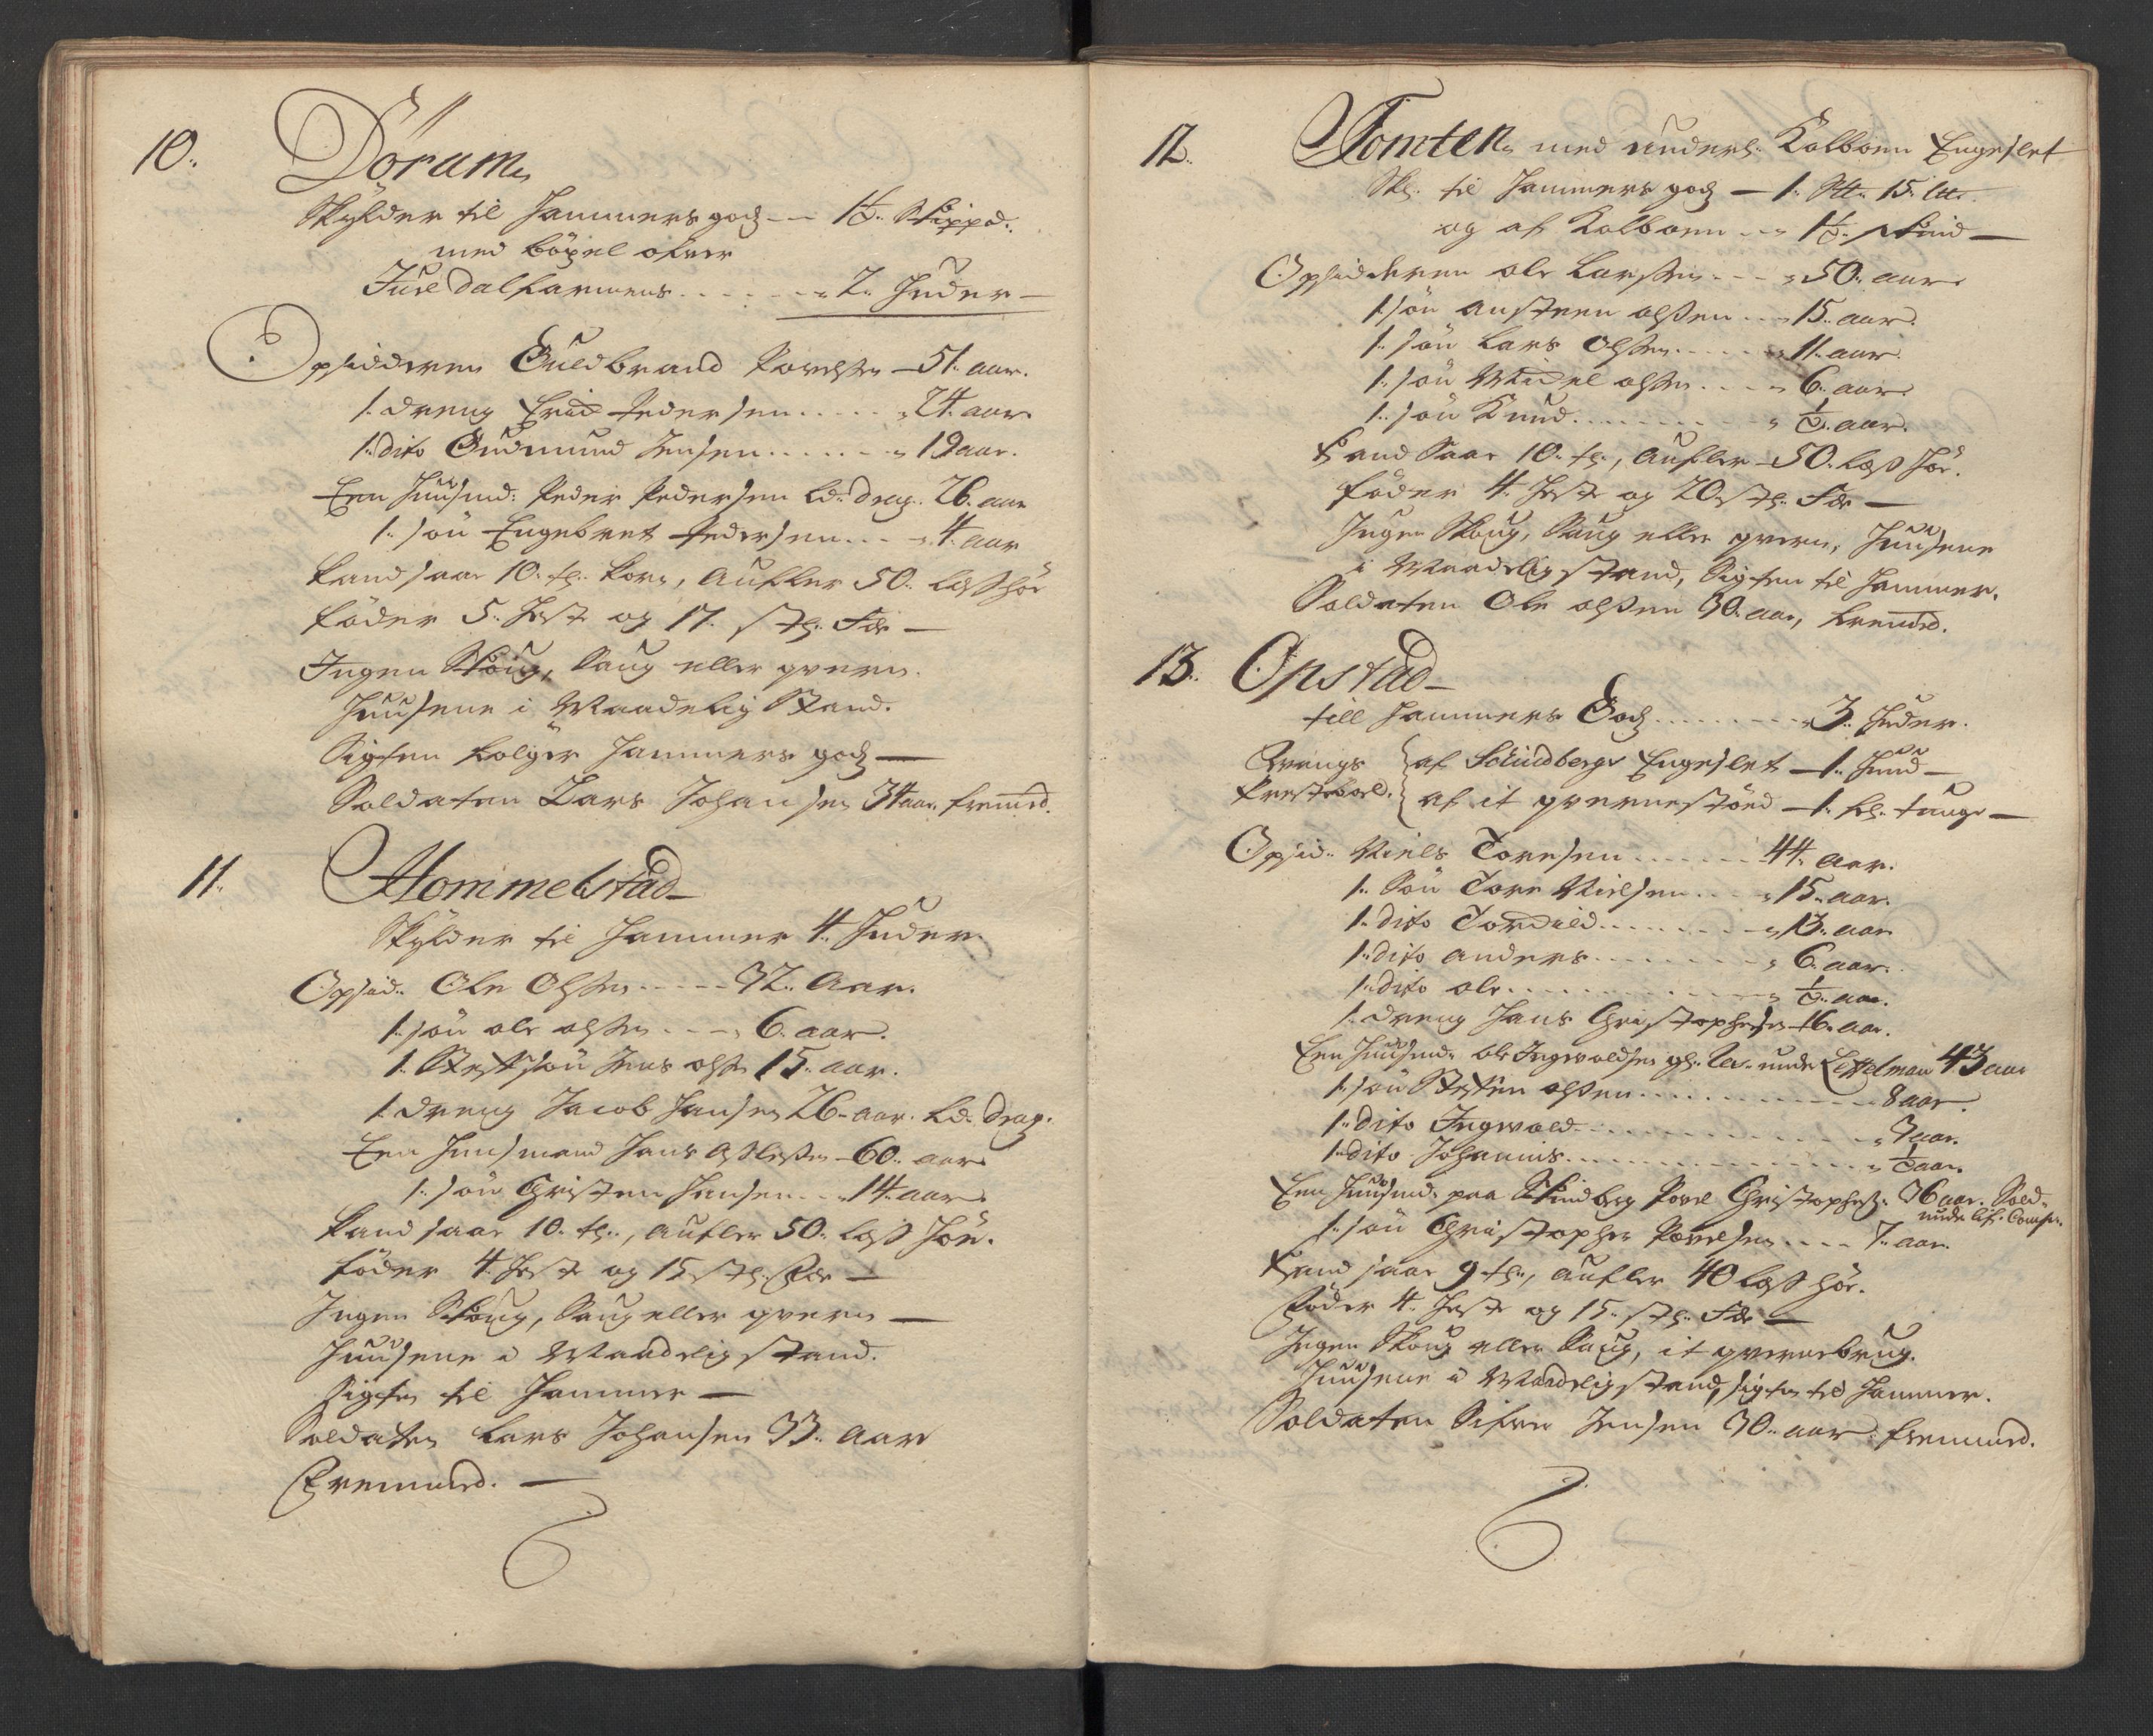 10. Dörum
Skylder til Hammers godz — 1½ Skippd.
med böxel ofver
Juel Dal farmens . . . . . 2. Huder —
Opsidderen Guldbrand Povelsen — 51. aar.
1. dreng Erich Pedersen . . . . . 24. aar
1. dito Gudmund Jensen . . . . . 19 aar.
Een Huusmd: Peder Pedersen Ld. drag. 26. aar
1. sön Engebret Pedersen . . . 4. aar
Kand saae 10. tr. korn, aufler 50. læss höe
föder 5. Heste og 17. stk. Fæ —
Ingen Skoug, Saug eller qvern.
Huusene i Maadelig Stand.
Sigten fölger Hammers godz —
Soldaten Lars Johansen 34 aar fremmed.
11. Hommelstad
Skylder til Hammer 4. Huder.
Opsid. Ole Olsen . . . . 32. Aar.
1. sön ole olsen . . . 6. aar.
1. Stefsön Jens olsen 15. aar.
1. dreng Jacob Hansen 26. aar. Ld. drag.
Een Huusmand Hans Atlesen — 60. aar
1. sön Christen Hansen . . . 14. aar
Kand saae 10. tr., aufler 50. læss Höe.
föder 4. Heste og 15. stk. Fæ —
Ingen Skoug, Saug eller qvern —
Huusene i Maadelig stand.
Sigten til Hammer —
Soldaten Lars Johansen 33. aar
Fremmed. —
12. Tomten med underl. Kalboen Engeslet
Skl. til Hammers godz — 1. S℔ 15. l℔.
og af Kolboen . . 1½ skind —
Opsidderen ole Larssen . . . 50. aar
1. sön austeen olssen . . . 15. aar.
1. sön Lars Olsen . . . . 11. aar.
1. sön Michel olsen . . . 6. aar
1. sön Knud . . . . . ½. aar.
Kand Saae 10. tr., Aufler 50. læss Höe.
föder 4. Heste og 20. stk. Fæ —
Ingen Skoug, Saug eller qvern, Huusene
i Maadelig stand, Sigten til Hammer.
Soldaten Ole olssen 30. aar, fremmd.
13. Opstad
till Hammers Godz . . . . . 3. Huder.
Qvangs af Schindbergs Engeslet — 1. Huud —
Prestebol. af it qvernestöed — 1. kl. tunge —
Opsid. Niels Toresen . . . . 44. aar.
1. Sön Tore Nielsen . . . 15. aar.
1. dito Torchild . . . . . 13. aar
1. dito anders . . . . . 6. aar.
1. dito ole . . . . . ½. aar.
1. dreng Hans Christophersen 16. aar.
Een Huusmd. ole Ingvoldsen gl. under Lettelman 43 aar
1. sön Steffen olssen . . . . . 8 aar.
1. dito Ingvold . . . . . 3 aar.
1. dito Johannis . . . . . ½ aar.
Een Huusmd. paa Skindberg Povel Christophers. 36 aar. Sold.
under lif. Comp.
1. sön Christopher Povelsen . . . . 7. aar.
Kand saae 9 tr., aufler 40 læss höe.
Föder 4. Heste og 15. stk. Fæ —
Ingen Skoug eller Saug, it qvernebrug.
Huusene i Maadelig stand, sigten til Hammer.
Soldaten Sifver Jensen 30. aar fremmed.